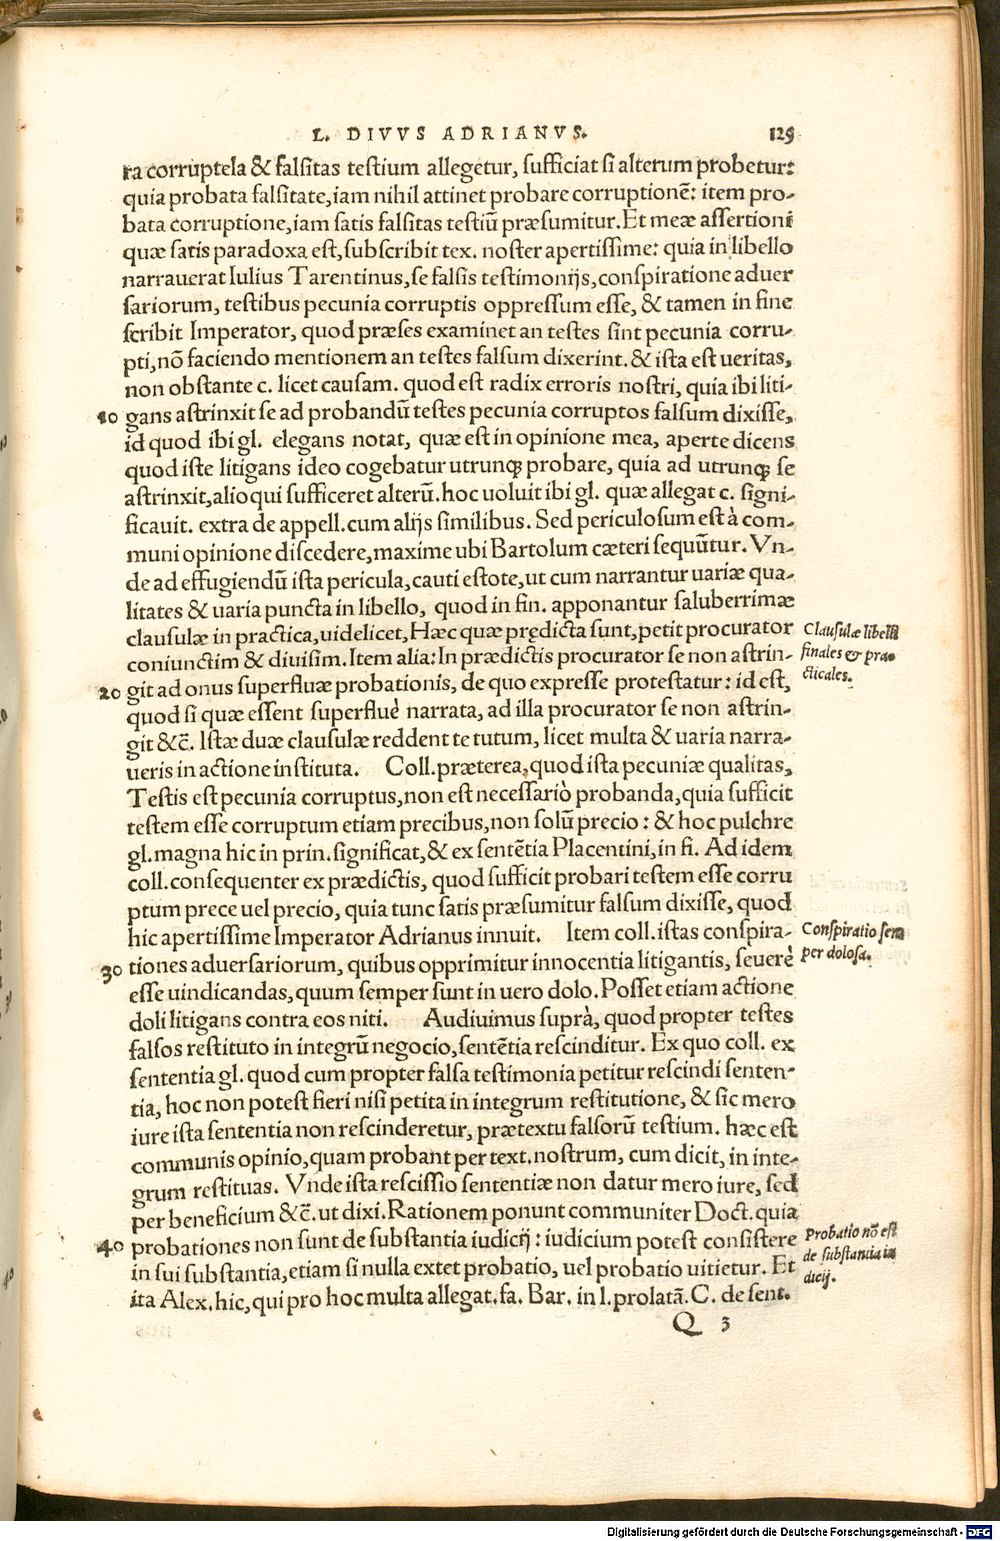 L. DIVVS ADRIANVS. 125
ra corruptela & falsitas testium allegetur, sufficiat si alterum probetur:
quia probata falsitate, iam nihil attinet probare corruptionē: item pro-
bata corruptione, iam satis falsitas testiū præsumitur. Et meæ assertioni
quæ satis paradoxa est, subscribit tex. noster apertissime: quia in libello
narrauerat Iulius Tarentinus, se falsis testimonijs, conspiratione aduer
sariorum, testibus pecunia corruptis oppressum esse, & tamen in fine
scribit Imperator, quod præses examinet an testes sint pecunia corru-
pti, nō faciendo mentionem an testes falsum dixerint. & ista est ueritas,
non obstante c. licet causam. quod est radix erroris nostri, quia ibi liti-
10 gans astrinxit se ad probandū testes pecunia corruptos falsum dixisse,
id quod ibi gl. elegans notat, quæ est in opinione mea, aperte dicens
quod iste litigans ideo cogebatur utrunq; probare, quia ad utrunq; se
astrinxit, alioqui sufficeret alterū. hoc uoluit ibi gl. quæ allegat c. signi-
ficauit. extra de appell. cum alijs similibus. Sed periculosum est à com-
muni opinione discedere, maxime ubi Bartolum cæteri sequūtur. Vn-
de ad effugiendū ista pericula, cauti estote, ut cum narrantur uariæ qua-
litates & uaria puncta in libello, quod in fin. apponantur saluberrimæ
clausulæ in practica, uidelicet, Hæc quæ prędicta sunt, petit procurator
Clausulæ libelli
coniunctim & diuisim. Item alia: In prædictis procurator se non astrin-
finales & pra-
20 git ad onus superfluæ probationis, de quo expresse protestatur: id est,
cticales.
quod si quæ essent superfluè narrata, ad illa procurator se non astrin-
git &c̄. Istæ duæ clausulæ reddent te tutum, licet multa & uaria narra-
ueris in actione instituta. Coll. præterea, quod ista pecuniæ qualitas,
Testis est pecunia corruptus, non est necessariò probanda, quia sufficit
testem esse corruptum etiam precibus, non solū precio: & hoc pulchre
gl. magna hic in prin. significat, & ex sentētia Placentini, in fi. Ad idem
coll. consequenter ex prædictis, quod sufficit probari testem esse corru
ptum prece uel precio, quia tunc satis præsumitur falsum dixisse, quod
hic apertissime Imperator Adrianus innuit. Item coll. istas conspira-
Conspiratio sem
30 tiones aduersariorum, quibus opprimitur innocentia litigantis, seuerè
per dolosa.
esse uindicandas, quum semper sunt in uero dolo. Posset etiam actione
doli litigans contra eos niti. Audiuimus suprà, quod propter testes
falsos restituto in integrū negocio, sentētia rescinditur. Ex quo coll. ex
sententia gl. quod cum propter falsa testimonia petitur rescindi senten-
tia, hoc non potest fieri nisi petita in integrum restitutione, & sic mero
iure ista sententia non rescinderetur, prætextu falsorū testium. hæc est
communis opinio, quam probant per text. nostrum, cum dicit, in inte-
grum restituas. Vnde ista rescissio sententiæ non datur mero iure, sed
per beneficium &c̄. ut dixi. Rationem ponunt communiter Doct. quia
40 probationes non sunt de substantia iudicij: iudicium potest consistere
Probatio nō est
in sui substantia, etiam si nulla extet probatio, uel probatio uitietur. Et
de substantia iu
ita Alex. hic, qui pro hoc multa allegat. fa. Bar. in l. prolatā. C. de sent.
dicij.
Q 3
Digitalisierung gefördert durch die Deutsche Forschungsgemeinschaft - DFG